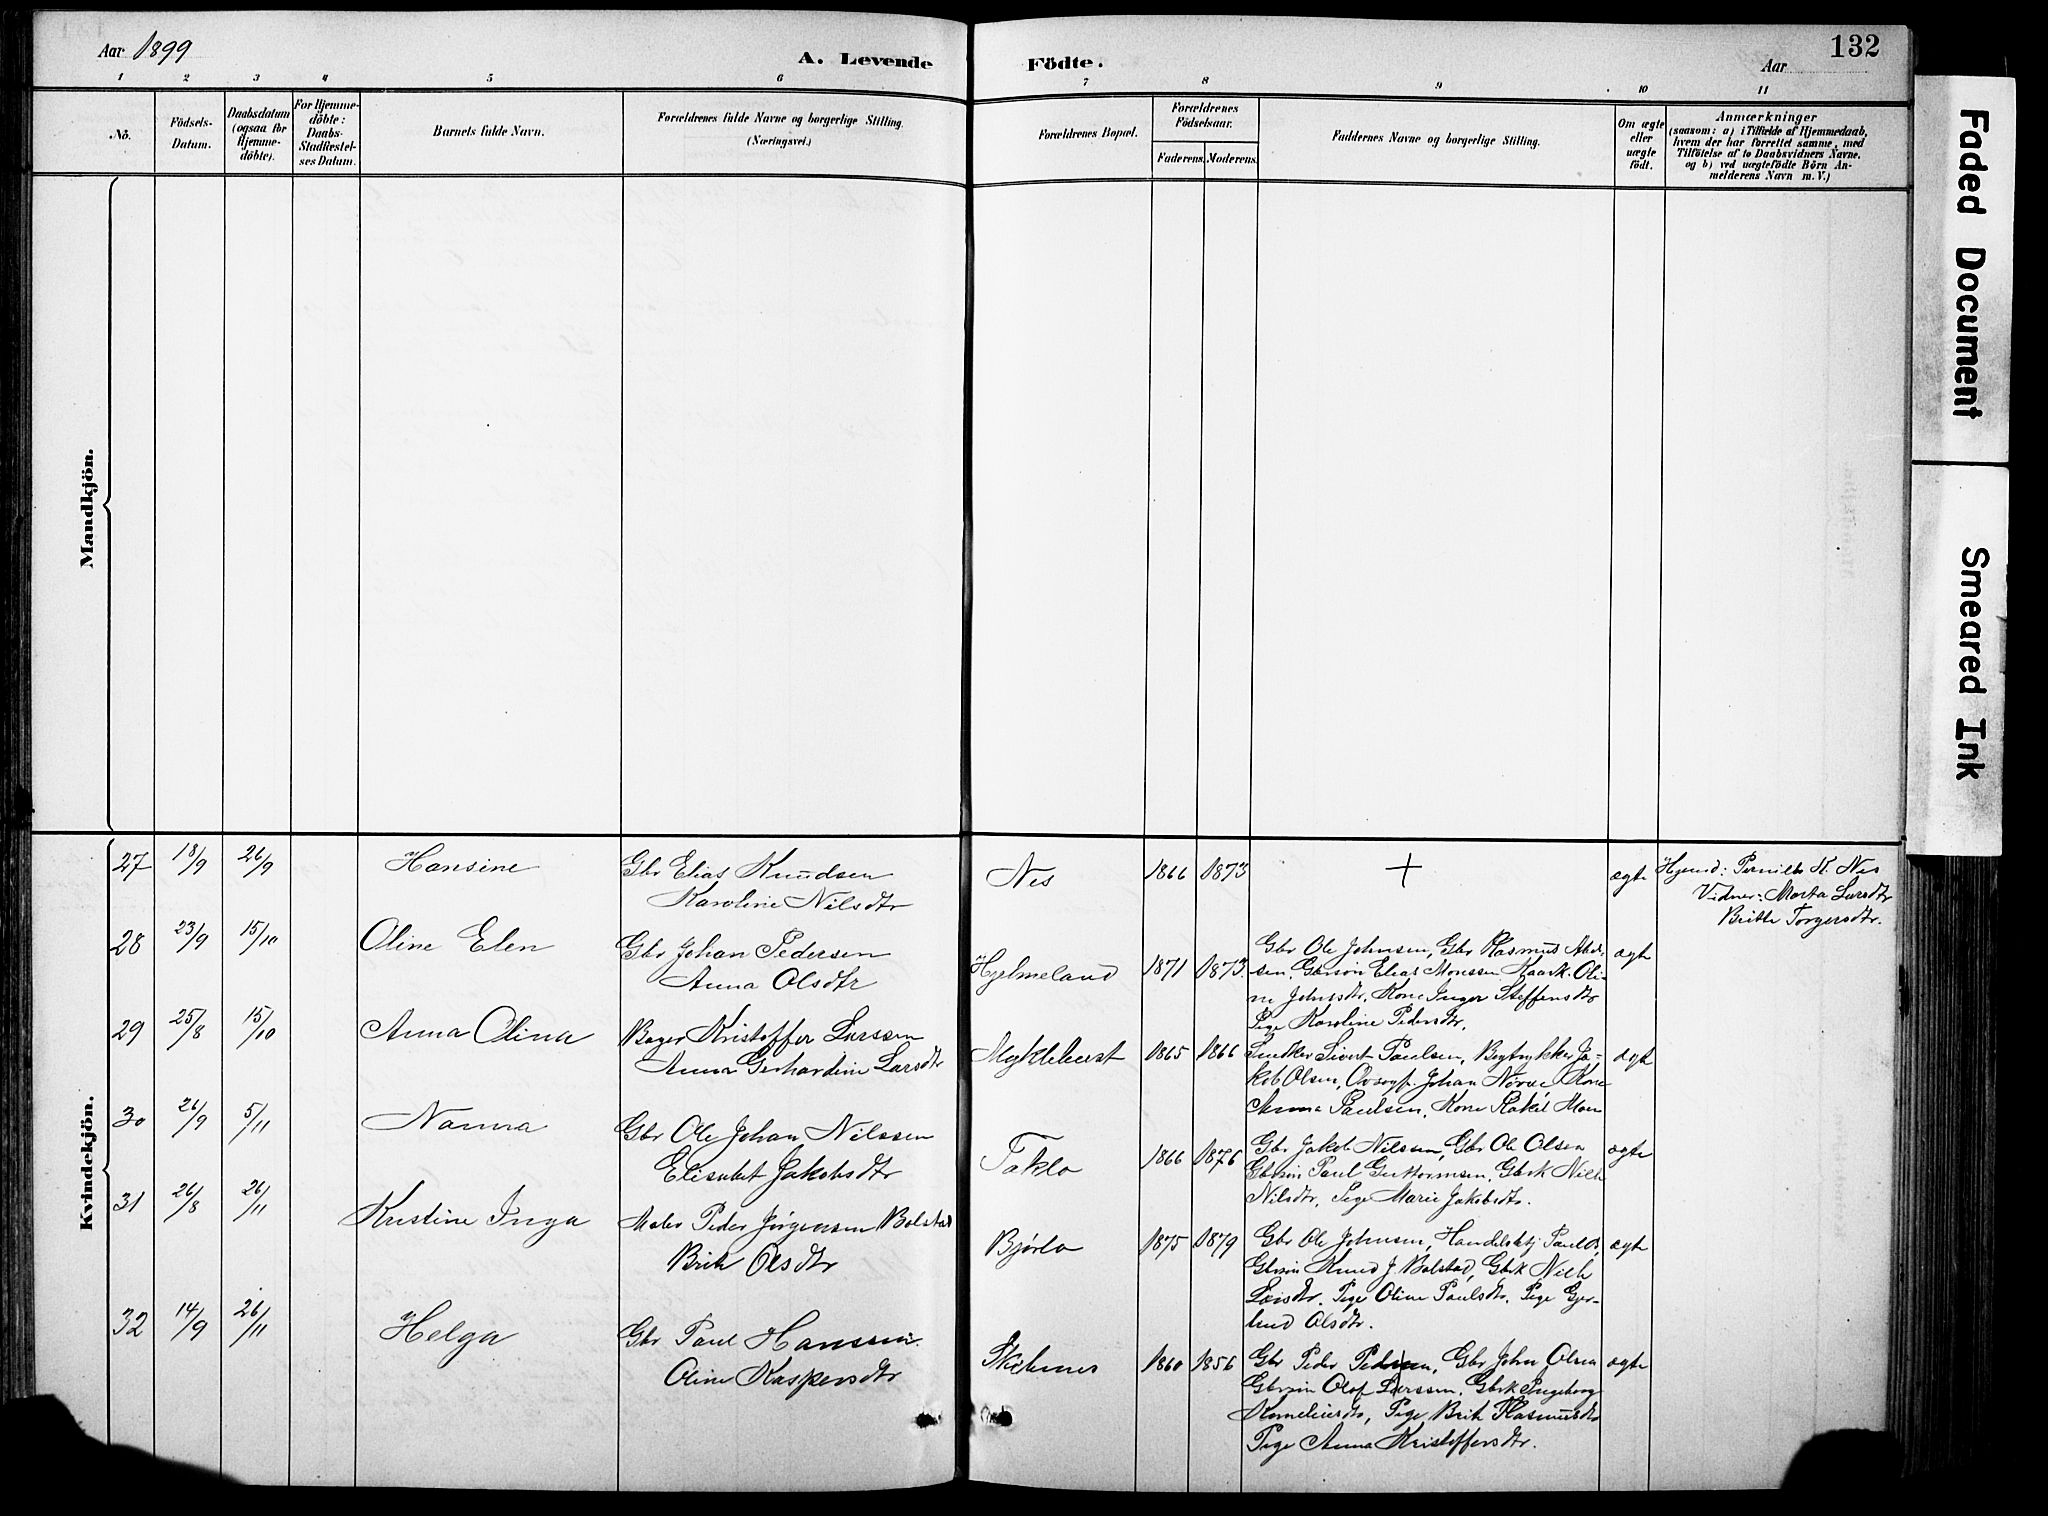 Aar 1899
A. Levende Födte.
Aar
132
1 2 3 4 5 6 7 8 9 10 11
No.
Födsels-Datum.
Daabsdatum (ogsaa for Hjemme-döbte).
For Hjemme-döbte: Daabs-Stadfæstel-ses Datum.
Barnets fulde Navn.
Forældrenes fulde Navne og borgerlige Stilling.
(Næringsvei.)
Forældrenes Bopæl.
Forældrenes Födselsaar.
Faderens. Moderens.
Faddernes Navne og borgerlige Stilling.
Om ægte eller uægte födt.
Anmærkninger
(saasom: a) i Tilfælde af Hjemmedaab,
hvem der har forrettet samme, med
Tilföielse af to Daabsvidners Navne,
og b) ved uægtefödte Börn An-
melderens Navn m. V.)
Mandkjön.
Kvindekjön.
27 18/9 26/9 Hansine Gbr Elias Knudsen
Karoline Nilsdtr
Nes 1866 1873 + ægte Hjemd: Pernille K. Nes
Vidner: Marta Larsdtr
Britte Torgersdtr.
28 23/9 15/10 Oline Elen Gbr Johan Pedersen
Anna Olsdtr
Hjelmeland 1871 1873 Gbr Ole Johnsen, Gbr Rasmus
sen, Gbrsøn Elias Monssen Kaark. Oli-
ne Johnsdtr. Kone Inger Steffensdtr
Pige Karoline Pedersdtr.
ægte
29 25/8 15/10 Anna Olina Bager Kristoffer Larssen
Anna Gerhardine Larsdtr
Myklebust 1865 1866 Snedker Sivert Paulsen, Bogtrykker Ja-
kob Olsen, Johan Kone
Anna Paulsen, Kone Rakel
ægte
30 26/9 5/11 Nanna Gbr Ole Johan Nilssen
Elisabet Jakobsdtr
Taklo 1866 1876 Gbr Jakob Nilsen, Gbr Ole Olsen
Gbrsøn Paul Guttormsen, Gbrk
Nilsdtr, Pige Marie Jakobsdtr.
ægte
31 26/8 26/11 Kristine Inga Maler Peder Jørgensen Bolstad
Brite Olsdtr
Bjørlo 1875 1879 Gbr Ole Johnsen,
Gbrsøn Knud J. Bolstad, Gbrk
Larsdtr. Pige Oline Paulsdtr. Pige Gjer-
trud Olsdtr.
ægte
32 14/9 26/11 Helga Gbr Paul Hanssen.
Oline Kaspersdtr
1860 1856 Gbr Peder Gbr John Olsen
Gbrsøn Olof Larssen. Gbrk Ingeborg
Korneliusdtr, Pige Brite Rasmusdtr
Pige Anna Kristoffersdtr.
ægte
Faded Document
Smeared Ink